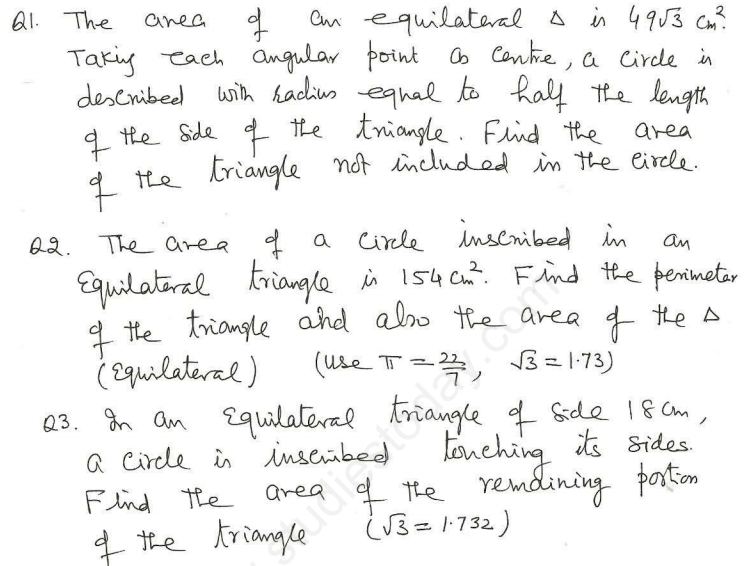 Q1. The area of an equilateral Δ is 49√3 cm².
Taking each angular point as centre, a circle is
described with radius equal to half the length
of the side of the triangle. Find the area
of the triangle not included in the circle.
Q2. The area of a circle inscribed in an
Equilateral triangle is 154 cm². Find the perimeter
of the triangle and also the area of the Δ
(Equilateral) (use π = 22/7, √3 = 1.73)
Q3. In an Equilateral triangle of side 18 cm,
a circle is inscribed touching its sides.
Find the area of the remaining portion
of the triangle (√3 = 1.732)
studiestoday.com